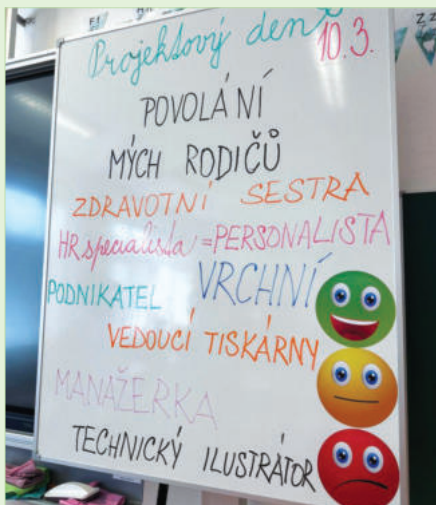 Projektový den
10.3.
POVOLÁNÍ
MÝCH RODIČŮ
ZDRAVOTNÍ SESTRA
HR specialista = PERSONALISTA
PODNIKATEL VRCHNÍ
VEDOUCÍ TISKÁRNY
MANAŽERKA
TECHNICKÝ ILUSTRÁTOR